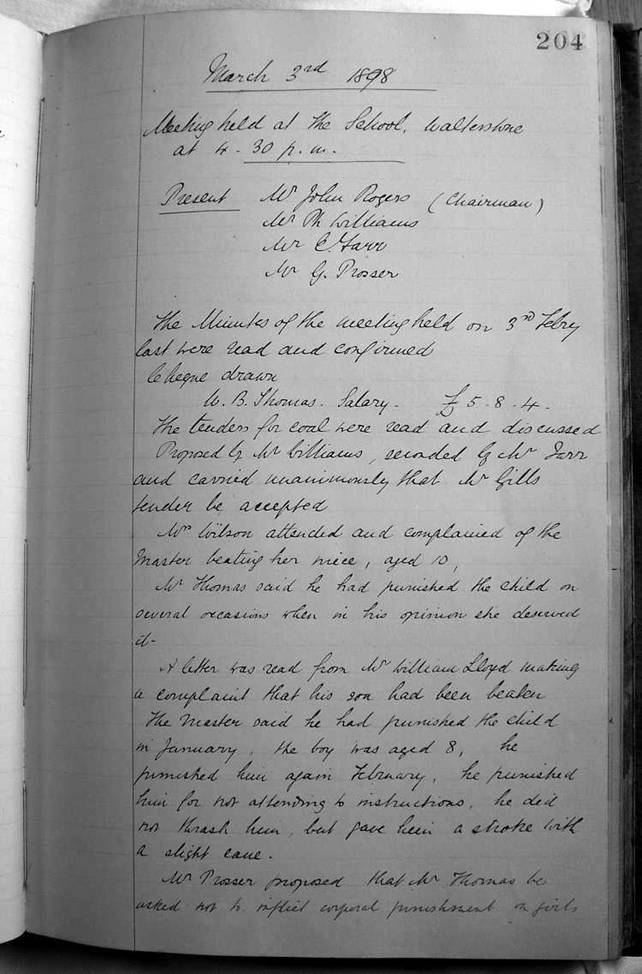 204
March 3rd 1898
Meeting held at the School, Walterstone
at 4-30 p.m.
Present Mr John Rogers (Chairman)
Mr Ph Williams
Mr C. Farr
Mr G. Prosser
The Minutes of the meeting held on 3rd Febry
last were read and confirmed
Cheque drawn
W. B. Thomas. Salary. £5-8-4.
The tenders for coal were read and discussed
Proposed by Mr Williams, seconded by Mr Farr
and carried unanimously that Mr Gills
tender be accepted
Mrs Wilson attended and complained of the
Master beating her niece, aged 10,
Mr Thomas said he had punished the child on
several occasions when in his opinion she deserved
it-
A letter was read from Mr William Lloyd making
a complaint that his son had been beaten
The Master said he had punished the child
in January, the boy was aged 8, he
punished him again February, he punished
him for not attending to instructions, he did
not thrash him, but gave him a stroke with
a slight cane.
Mr Prosser proposed that Mr Thomas be
asked not to inflict corporal punishment on girls